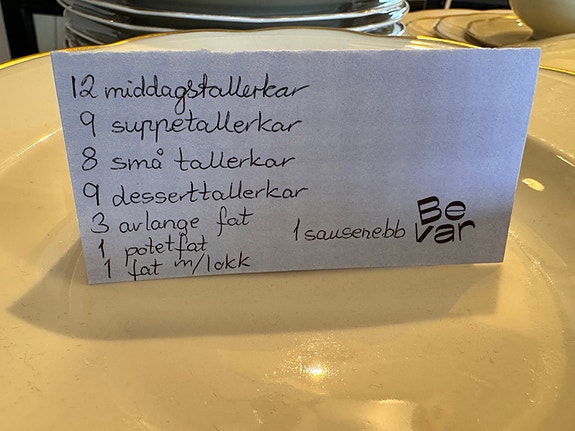 12 middagstallerkar
9 suppetallerkar
8 små tallerkar
9 desserttallerkar
3 avlange fat
1 potetfat
1 fat m/lokk
1 sausenebb
Be
var